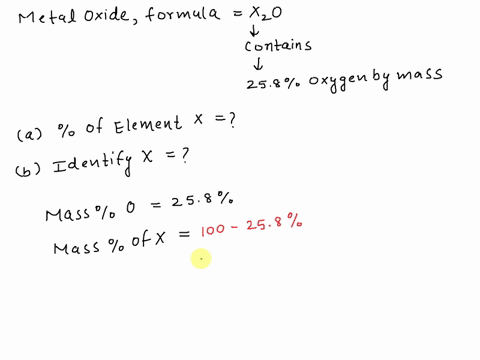 Metal Oxide, formula = X₂O
↓
Contains
↓
25.8% Oxygen by mass
(a) % of Element X = ?
(b) Identify X = ?
Mass % O = 25.8%
Mass % of X = 100 - 25.8%